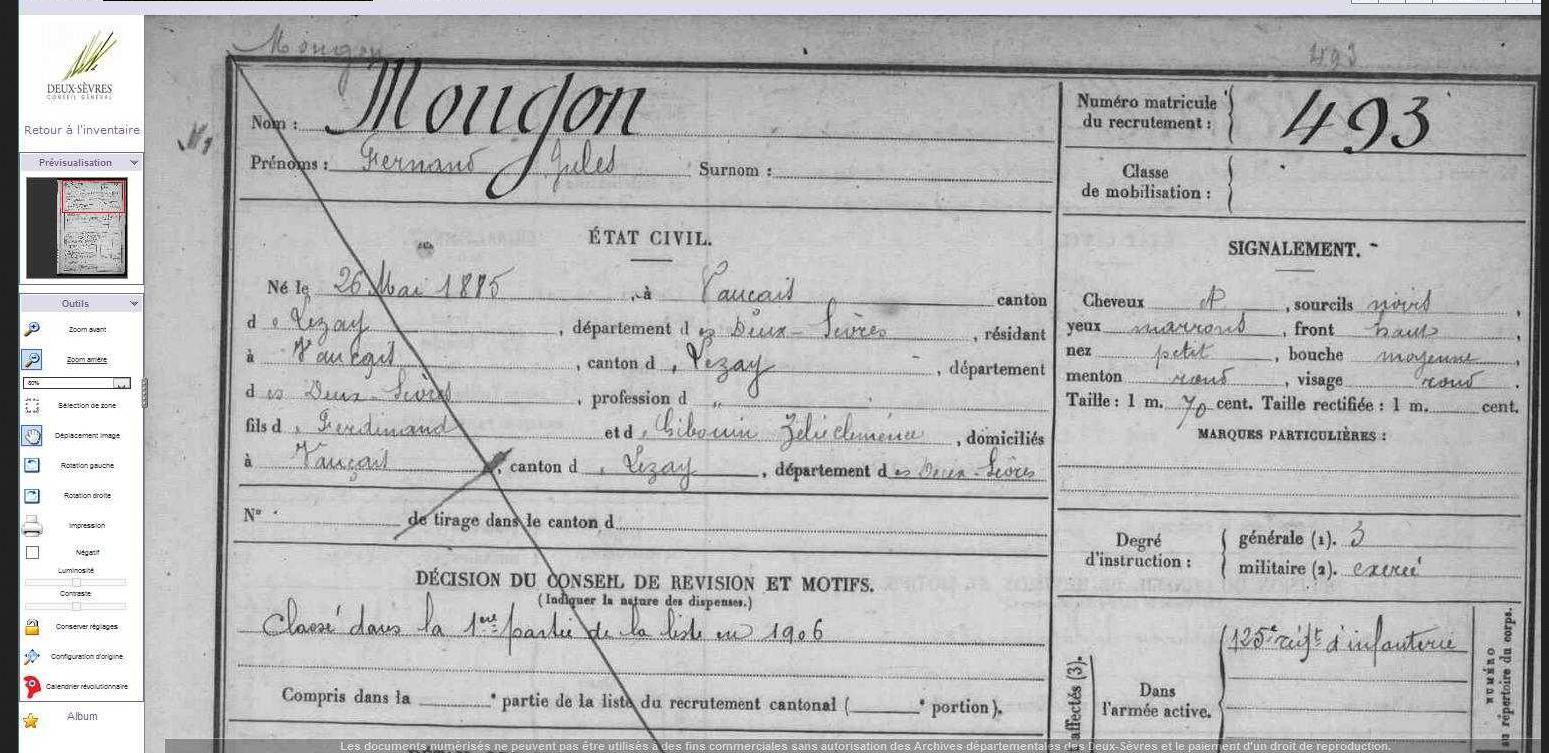 DEUX-SÈVRES
CONSEIL GÉNÉRAL
Retour à l'inventaire
Prévisualisation
Outils
Zoom avant
Zoom arrière
80%
Sélection de zone
Déplacement image
Rotation gauche
Rotation droite
Impression
Négatif
Luminosité
Contraste
Conserver réglages
Configuration d'origine
Calendrier révolutionnaire
Album
Mougon
493
Nom : Mougon
Prénoms : Fernand Jules Surnom :
Numéro matricule du recrutement : 493
Classe de mobilisation :
ÉTAT CIVIL.
Né le 26 Mai 1885, à Vançais canton
d e Lezay, département d es Deux-Sèvres, résidant
à Vançais, canton d e Lezay, département
d es Deux-Sèvres, profession d
fils d e Ferdinand et d e Zélie clémence, domiciliés
à Vançais, canton d e Lezay, département d es Deux-Sèvres
N° de tirage dans le canton d
DÉCISION DU CONSEIL DE REVISION ET MOTIFS.
(Indiquer la nature des dispenses.)
Classé dans la 1ère partie de la liste en 1906
Compris dans la e partie de la liste du recrutement cantonal ( e portion).
SIGNALEMENT.
Cheveux et, sourcils noirs,
yeux marrons, front haut,
nez petit, bouche moyenne,
menton rond, visage rond.
Taille : 1 m. 70 cent. Taille rectifiée : 1 m. cent.
MARQUES PARTICULIÈRES :
Degré d'instruction : générale (1). 3
militaire (2). exercé
affectés (3).
Dans l'armée active.
125e régt d'infanterie
NUMÉRO
au répertoire du corps.
Les documents numérisés ne peuvent pas être utilisés à des fins commerciales sans autorisation des Archives départementales des Deux-Sèvres et le paiement d'un droit de reproduction.